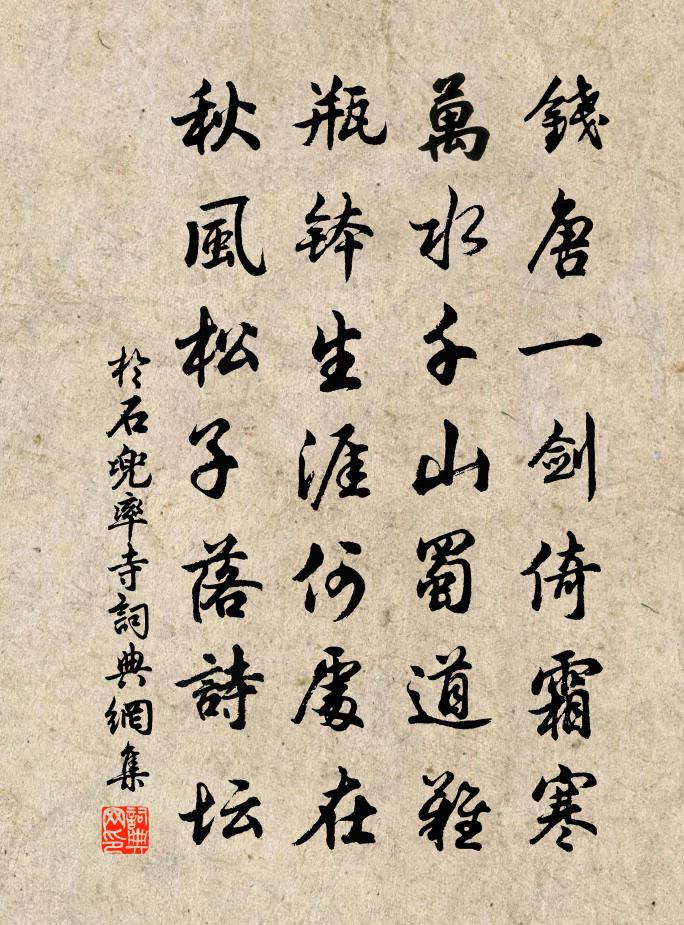 錢唐一劍倚霜寒
萬水千山蜀道難
瓶鉢生涯何處在
秋風松子落詩坛
於石兜率寺詞典網集
詞典网印